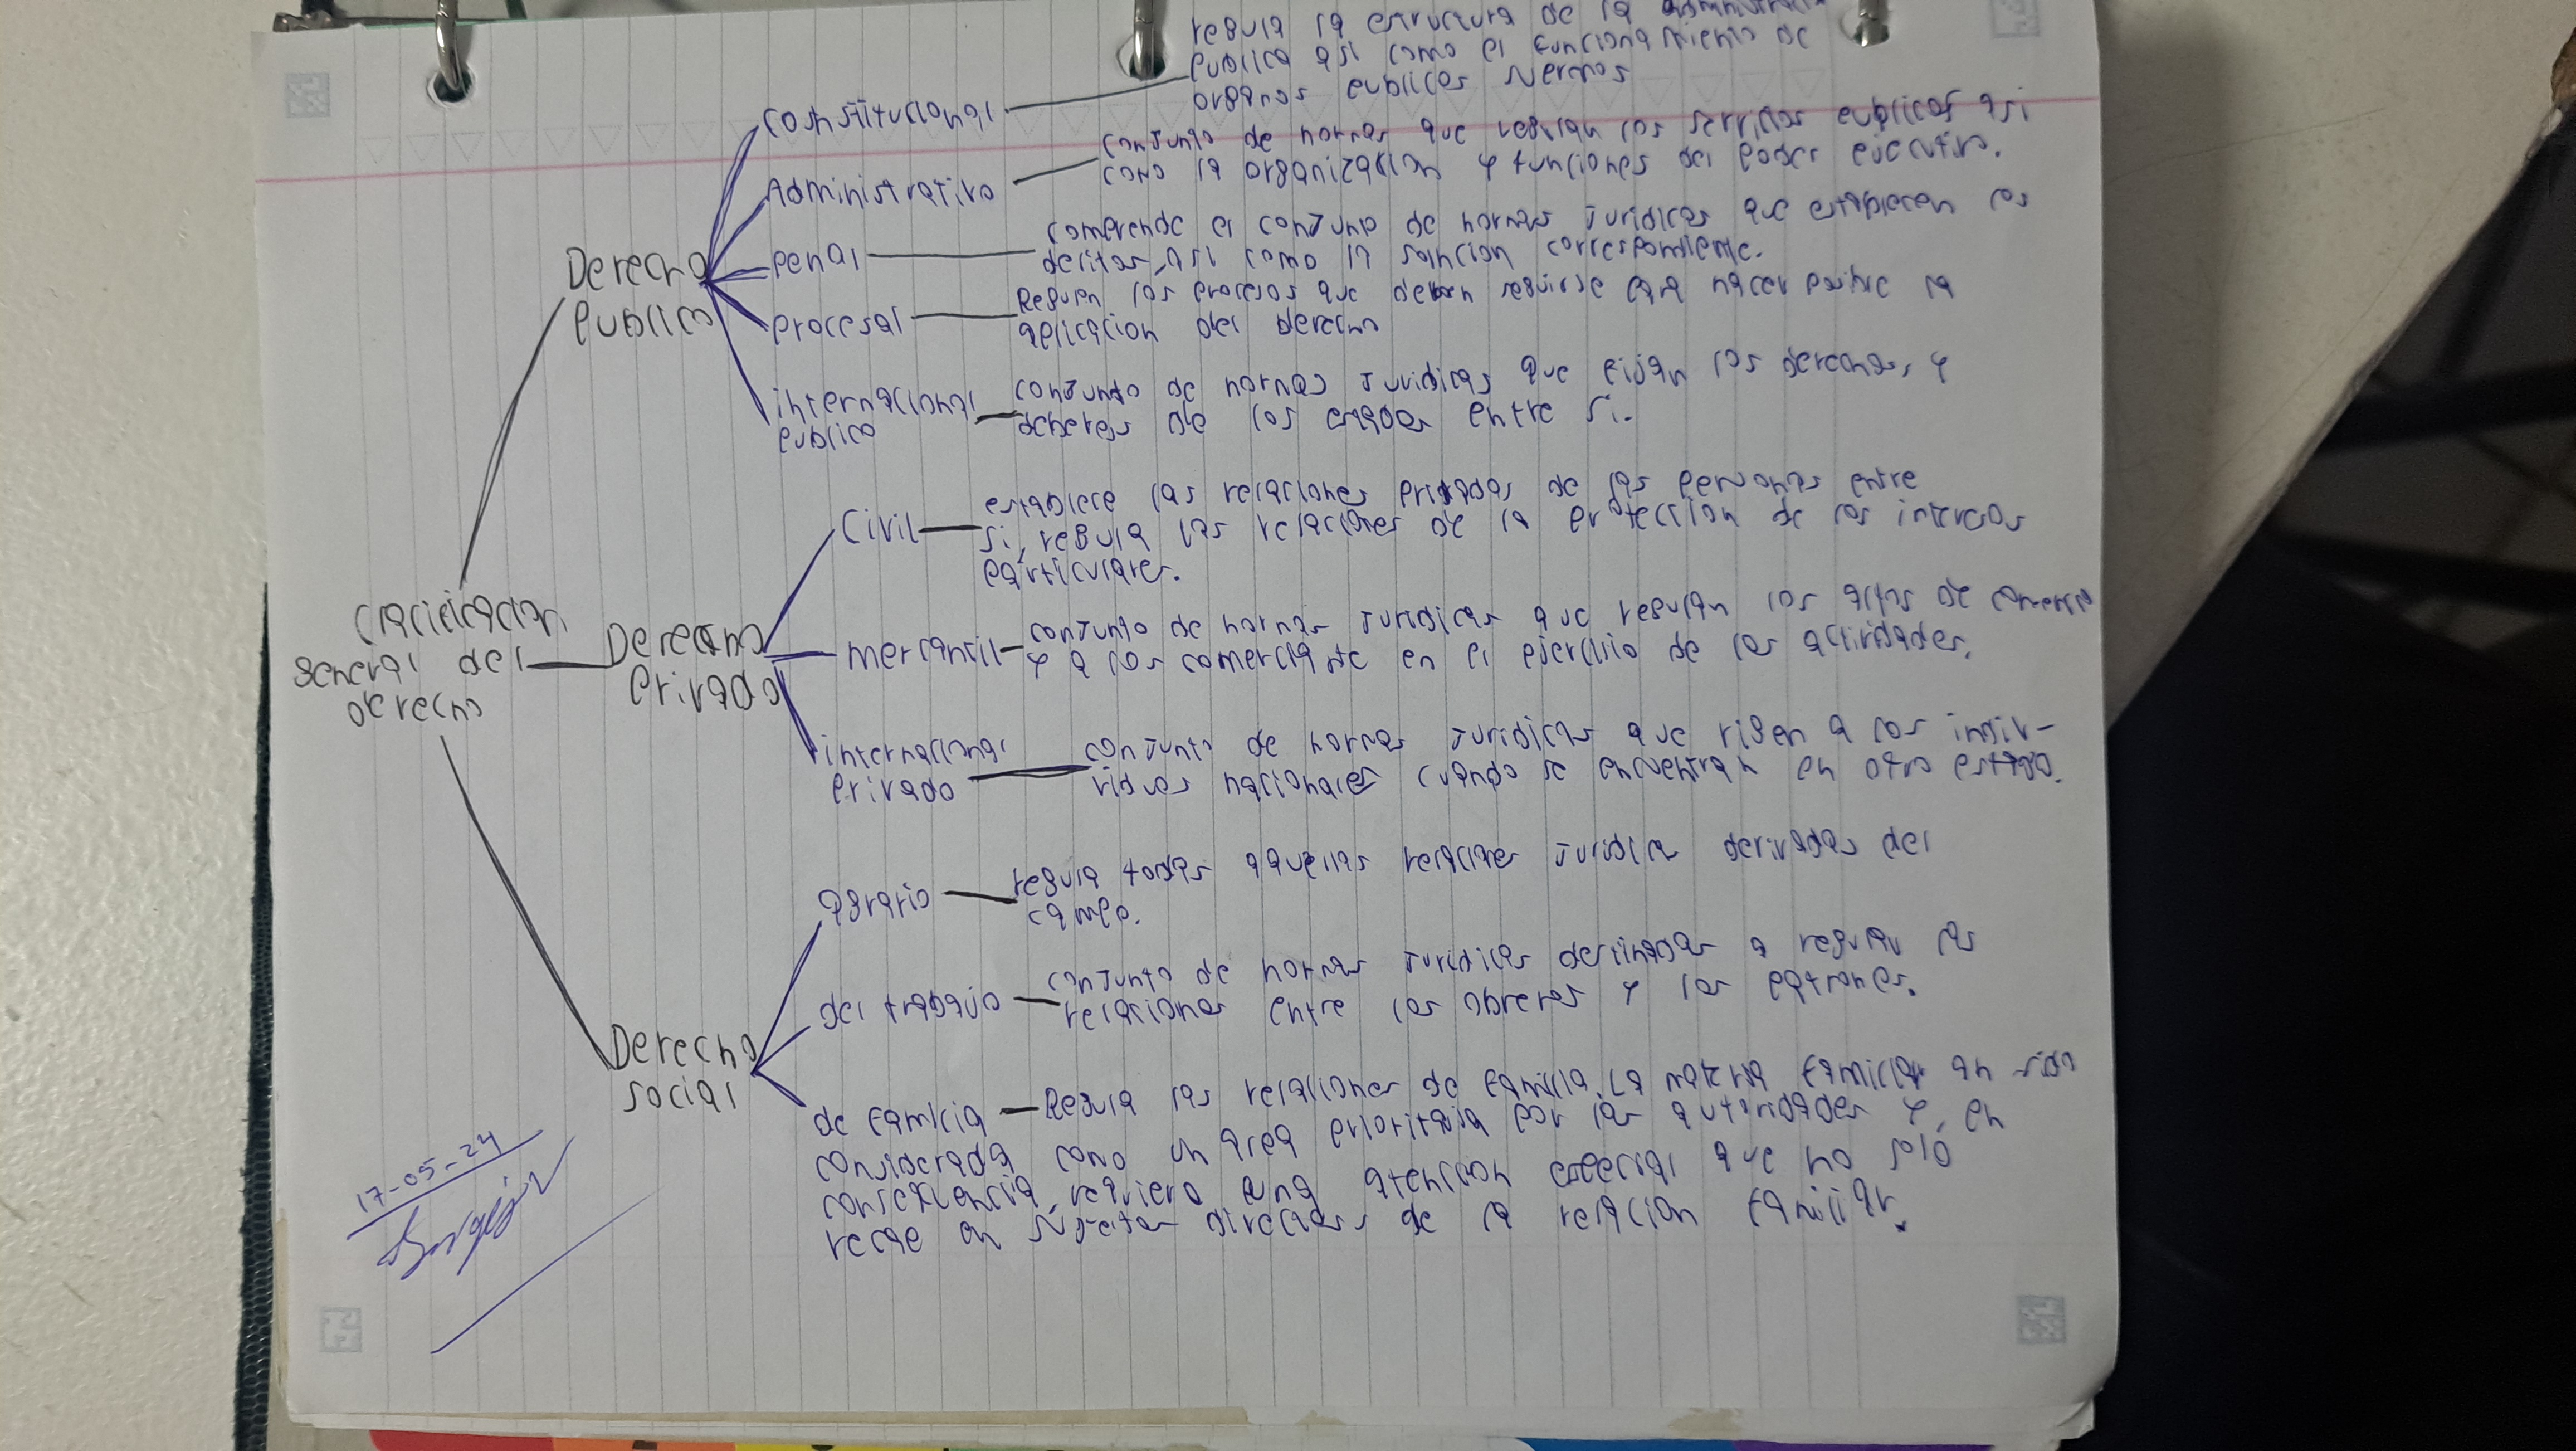 regula la estructura de la administracion
publica asi como el funcionamiento de
organos publicos
costitucional
conjunto de normas que regulan los servicios publicos asi
como la organización y funciones del poder ejecutivo.
Administrativo
comprende el conjunto de normas juridicas que establecen los
delitos, asi como la sancion correspondiente.
penal
Derecho
publico
Regulen los procesos que deben seguirse para hacer posible la
aplicacion del derecho
procesal
conjunto de normas juridicas que fijan los derechos, y
deberes de los estados entre si.
internacional
publico
establece las relaciones privadas de las personas entre
si, regula las relaciones de la protección de los intereses
particulares.
Civil
clacificacion
general del
derecho
Derecho
Privado
conjunto de normas juridicas que regulan los actos de comercio
y a los comerciante en el ejercisio de las actividades.
mercantil
conjunto de normas juridicas que rigen a los indiv-
viduos nacionales cuando se encuentran en otro estado.
internacional
privado
regula todas aquellas relaciones juridica derivadas del
campo.
agrario
conjunto de normas juridicas destinadas a regular las
relaciones entre los obreros y los patrones.
del trabajo
Derecho
social
de familia — Regula las relaciones de familia. La materia familiar an sido
considerada como un area prioritaria por las autoridades y, en
consecuencia, requiero una atencion especial que no solo
recae en sujetos directos de la relacion familiar.
17-05-24